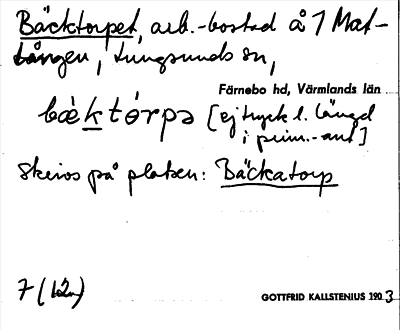 Bäcktorpet, arb.-bostad å 1 Mat-
tången, Lungsunds sn,
Färnebo hd, Värmlands län
bäktórpə [ej tryck l. längd
i prim.-ant]
Skrivs på platsen: Bäckatorp
7 (12)
GOTTFRID KALLSTENIUS 1903